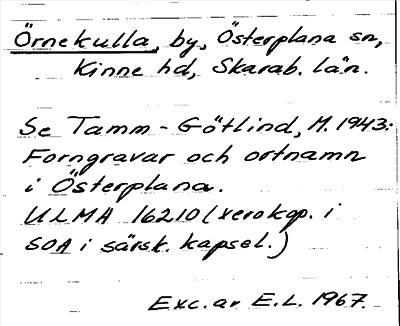 Örnekulla, by, Österplana sn,
Kinne hd, Skarab. län.
Se Tamm-Götlind, M. 1943:
Forngravar och ortnamn
i Österplana.
ULMA 16210 (xerokop. i
SOA i särsk. kapsel.)
Exc. av E.L. 1967.